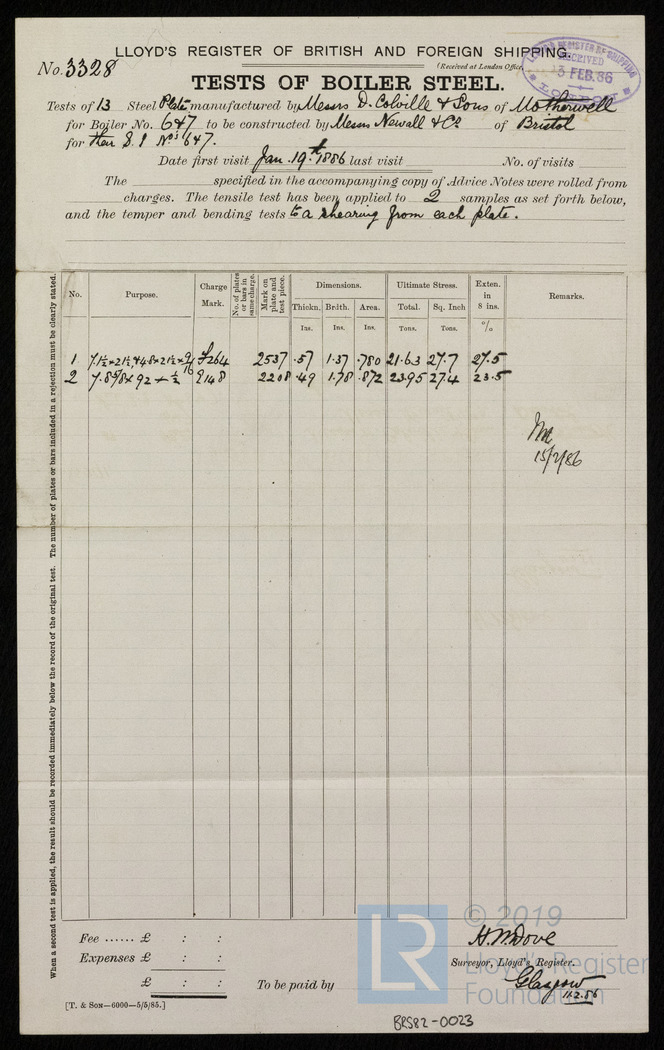 LLOYD'S REGISTER OF BRITISH AND FOREIGN SHIPPING.
No. 3328
(Received at London Office
LLOYD'S REGISTER OF SHIPPING
RECEIVED
3 FEB.86
LONDON
TESTS OF BOILER STEEL.
Tests of 13 Steel Plates manufactured by Messrs D. Colville & Sons of Motherwell
for Boiler No. 647 to be constructed by Messrs Newall & Co of Bristol
for their S.S. Nos 647.
Date first visit Jan. 19th 1886 last visit No. of visits
The specified in the accompanying copy of Advice Notes were rolled from
charges. The tensile test has been applied to 2 samples as set forth below,
and the temper and bending tests to a shearing from each plate.
When a second test is applied, the result should be recorded immediately below the record of the original test. The number of plates or bars included in a rejection must be clearly stated.
No. Purpose. Charge Mark. No. of plates or bars in same charge. Mark on plate and test piece. Dimensions. Ultimate Stress. Exten. in 8 ins. Remarks.
Thickn. Brdth. Area. Total. Sq. Inch
Ins. Ins. Ins. Tons. Tons. %
1 7.1½×2½+48×2½×9/16 £264 2537 .57 1.37 .780 21.63 27.7 27.5
2 7.8⅝×92×½ 9148 2208 .49 1.78 .872 23.95 27.4 23.5
15/2/86
Fee ...... £ : :
Expenses £ : :
£ : :
To be paid by
H. W. Dove
Surveyor, Lloyd's Register.
Glasgow
11.2.86
[T. & SON—6000—5/5/85.]
LR
© 2019
Lloyd's Register
Foundation
BRS82-0023